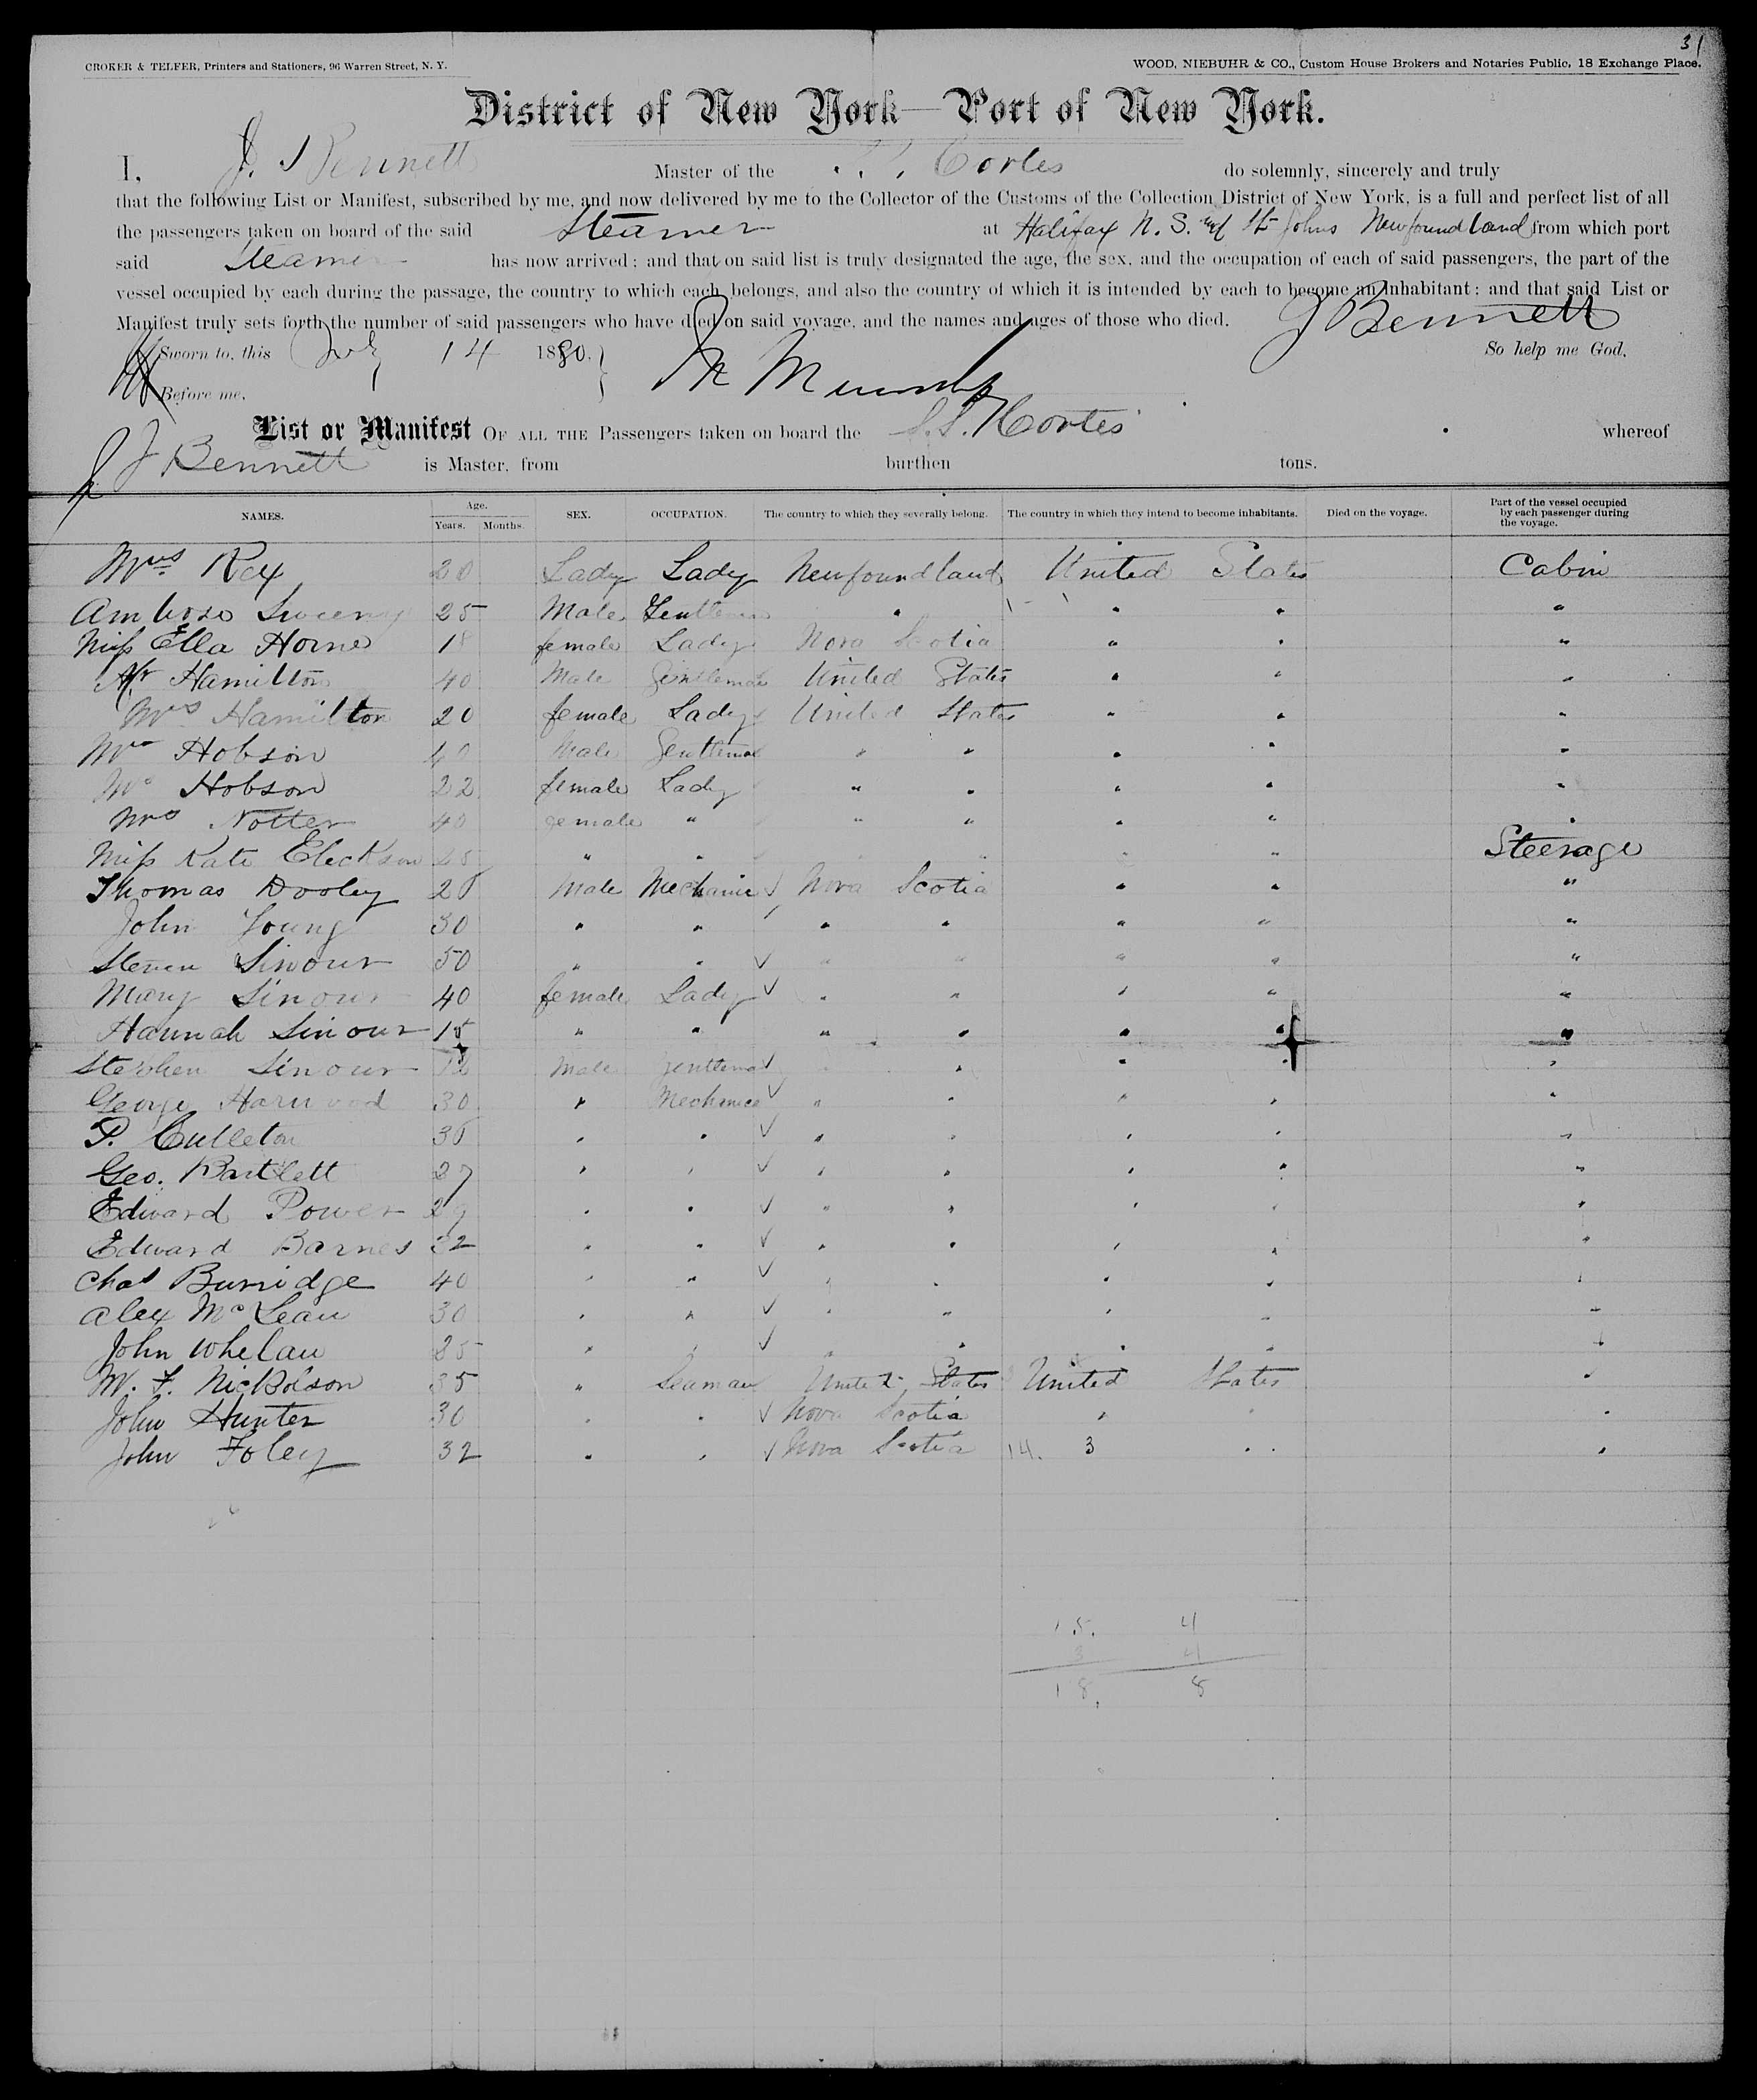 31
CROKER & TELFER, Printers and Stationers, 96 Warren Street, N. Y. WOOD, NIEBUHR & CO., Custom House Brokers and Notaries Public, 18 Exchange Place.
District of New York—Port of New York.
I, J. Bennett Master of the S.S. Cortes do solemnly, sincerely and truly
that the following List or Manifest, subscribed by me, and now delivered by me to the Collector of the Customs of the Collection District of New York, is a full and perfect list of all
the passengers taken on board of the said Steamer at Halifax N. S. and St Johns Newfoundland from which port
said Steamer has now arrived; and that on said list is truly designated the age, the sex, and the occupation of each of said passengers, the part of the
vessel occupied by each during the passage, the country to which each belongs, and also the country of which it is intended by each to become an Inhabitant; and that said List or
Manifest truly sets forth the number of said passengers who have died on said voyage, and the names and ages of those who died. J Bennett
Sworn to, this July 14 1880. So help me God.
Before me,
List or Manifest OF ALL THE Passengers taken on board the S.S. Cortes whereof
J Bennett is Master, from burthen tons.
NAMES. Age. Years. Months. SEX. OCCUPATION. The country to which they severally belong. The country in which they intend to become inhabitants. Died on the voyage. Part of the vessel occupied by each passenger during the voyage.
Mrs Rex 20 Lady Lady Newfoundland United States Cabin
Ambrose Sweeny 25 Male Gentleman " " " "
Miss Ella Horne 18 female Lady Nova Scotia " " "
Mr Hamilton 40 Male Gentleman United States " " "
Mrs Hamilton 20 female Lady United States " " "
Mr Hobson 40 Male Gentleman " " " " "
Mrs Hobson 22 female Lady " " " " "
Mrs Notter 40 female " " " " " "
Miss Kate 25 " " " " " " Steerage
Thomas Dooley 26 Male Mechanic Nova Scotia " " "
John Young 30 " " " " " " "
Steven Sinour 50 " " " " " " "
Mary Sinour 40 female Lady " " " " "
Hannah Sinour 15 " " " " " " "
Stephen Sinour 12 Male gentleman " " " " "
George Harwood 30 " Mechanic " " " " "
P. Culleton 36 " " " " " " "
Geo. Bartlett 27 " " " " " " "
Edward Power 29 " " " " " " "
Edward Barnes 32 " " " " " " "
Chas Burridge 40 " " " " " " "
Alex McLean 30 " " " " " " "
John Whelan 25 " " " " " " "
W. F. Nickolson 35 " Seaman United States United States "
John Hunter 30 " " Nova Scotia " " "
John Foley 32 " " Nova Scotia 14. 3 " " "
15. 4
3 4
18. 8